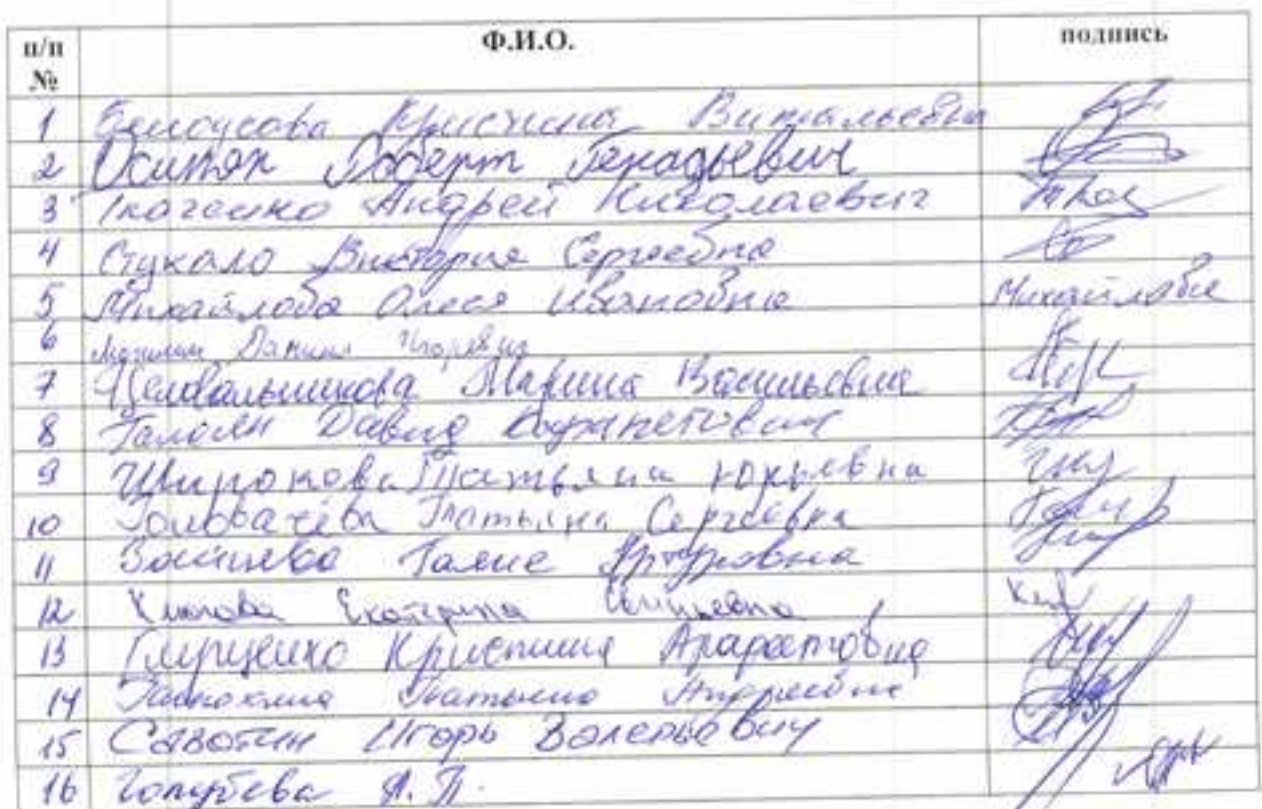 п/п № Ф.И.О. подпись
1 Белоусова Кристина Витальевна
2 Осипян Роберт Генадьевич
3 Ткаченко Андрей Николаевич
4 Стукало Виктория Сергеевна
5 Михайлова Олеся Ивановна Михайлова
6 Данил Игоревич
7 Целовальникова Марина Васильевна
8 Галоян Давид Карапетович
9 Широкова Татьяна Юрьевна
10 Головачёва Татьяна Сергеевна
11 Артуровна
12 Екатерина
13 Глущенко Кристина Араратовна
14 Татьяна Андреевна
15 Савотин Игорь Валерьевич
16 Голубева Л. П.